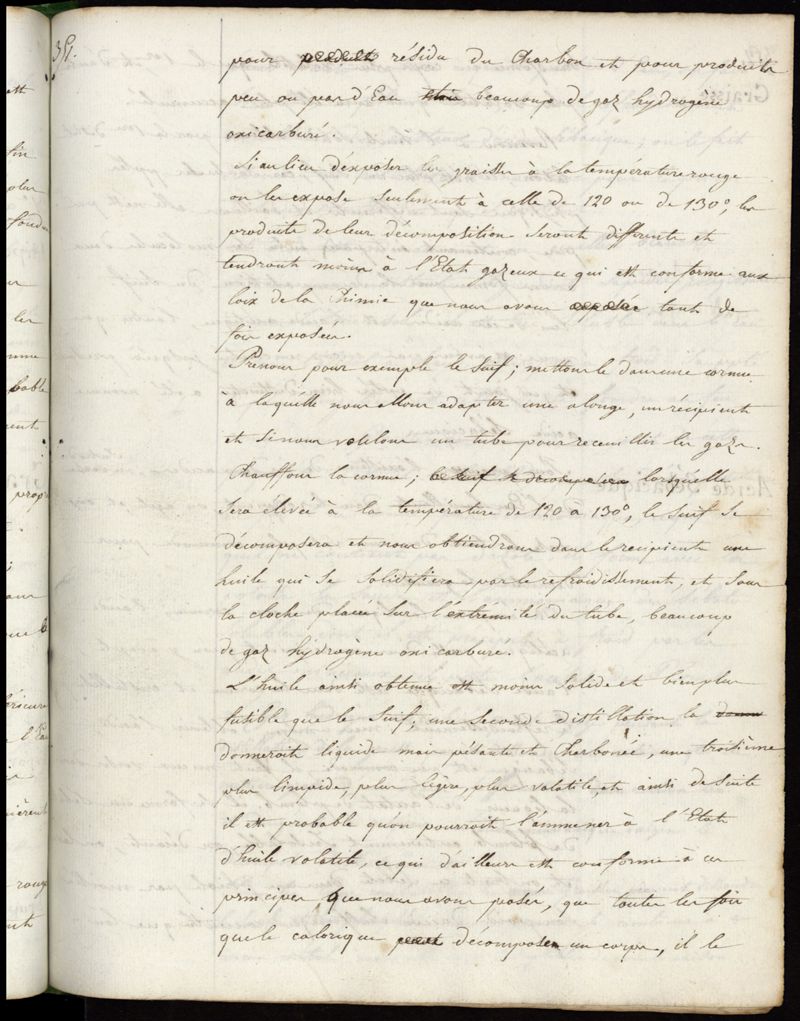 35.
pour résidu du Charbon et pour produits
peu ou pas d'Eau beaucoup de gaz hydrogène
oxicarburé.
Si au lieu d'exposer les graisses à la température rouge
on les expose seulement à celle de 120 ou de 130°, les
produits de leur décomposition seront différents et
tendront moins à l'Etat gazeux ce qui est conforme aux
loix de la Chimie que nous avons tant de
fois exposées.
Prenons pour exemple le Suif; mettons le dans une cornue
à laquelle nous allons adapter une alonge, un récipient
et si nous voulons un tube pour receuillir les gazs.
Chauffons la cornue; le suif se décomposera lorsquelle
sera élevée à la température de 120 à 130°, le Suif se
décomposera et nous obtiendrons dans le recipients une
huile qui se solidifiera par le refroidissement, et sous
la cloche placée sur l'extrémité du tube, beaucoup
de gaz hydrogène oxicarburé.
L'huile ainsi obtenue est moins solide et bien plus
fusible que le Suif; une seconde distillation la
donneroit liquide mais pésante et Charbonée, une troisième
plus limpide, plus légère, plus volatile, et ainsi de suite
il est probable qu'on pourroit l'ammener à l'Etat
d'huile volatile, ce qui d'ailleurs est conforme à ces
principes que nous avons posés, que toutes les fois
que le calorique décompose un corps, il le